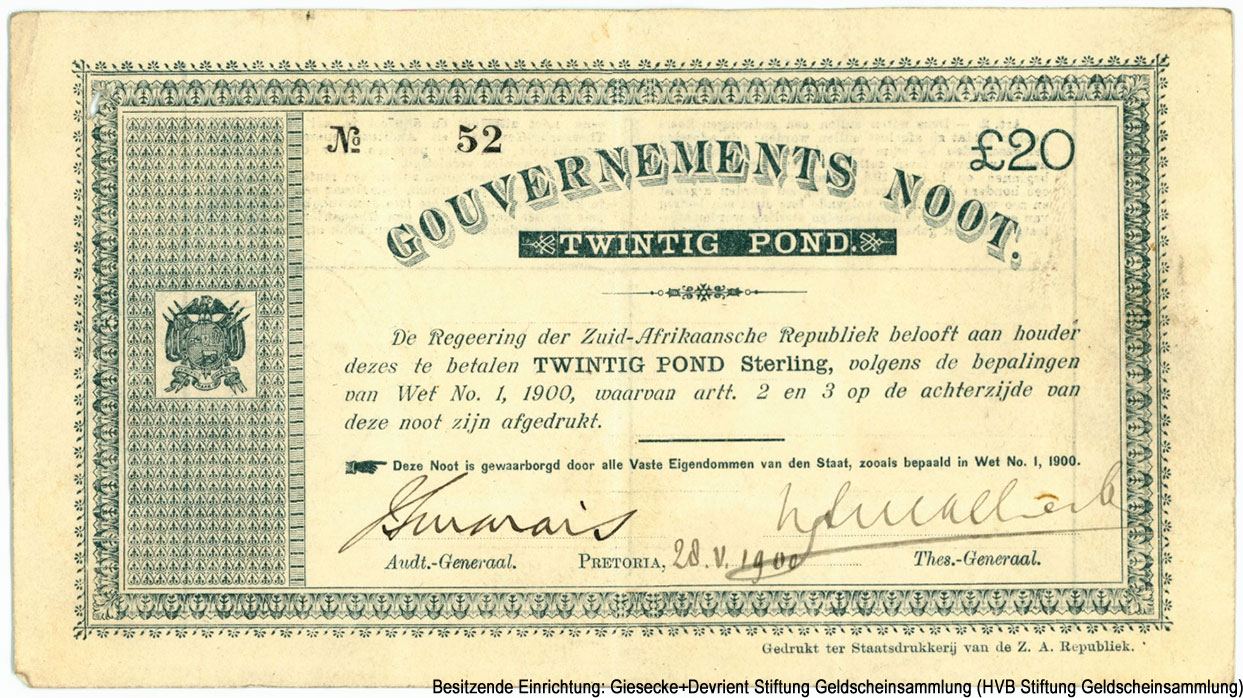 № 52
£20
GOUVERNEMENTS NOOT.
TWINTIG POND.
De Regeering der Zuid-Afrikaansche Republiek belooft aan houder
dezes te betalen TWINTIG POND Sterling, volgens de bepalingen
van Wet No. 1, 1900, waarvan artt. 2 en 3 op de achterzijde van
deze noot zijn afgedrukt.
Deze Noot is gewaarborgd door alle Vaste Eigendommen van den Staat, zooals bepaald in Wet No. 1, 1900.
Audt.-Generaal. PRETORIA, 28.V.1900 Thes.-Generaal.
Gedrukt ter Staatsdrukkerij van de Z. A. Republiek.
Besitzende Einrichtung: Giesecke+Devrient Stiftung Geldscheinsammlung (HVB Stiftung Geldscheinsammlung)